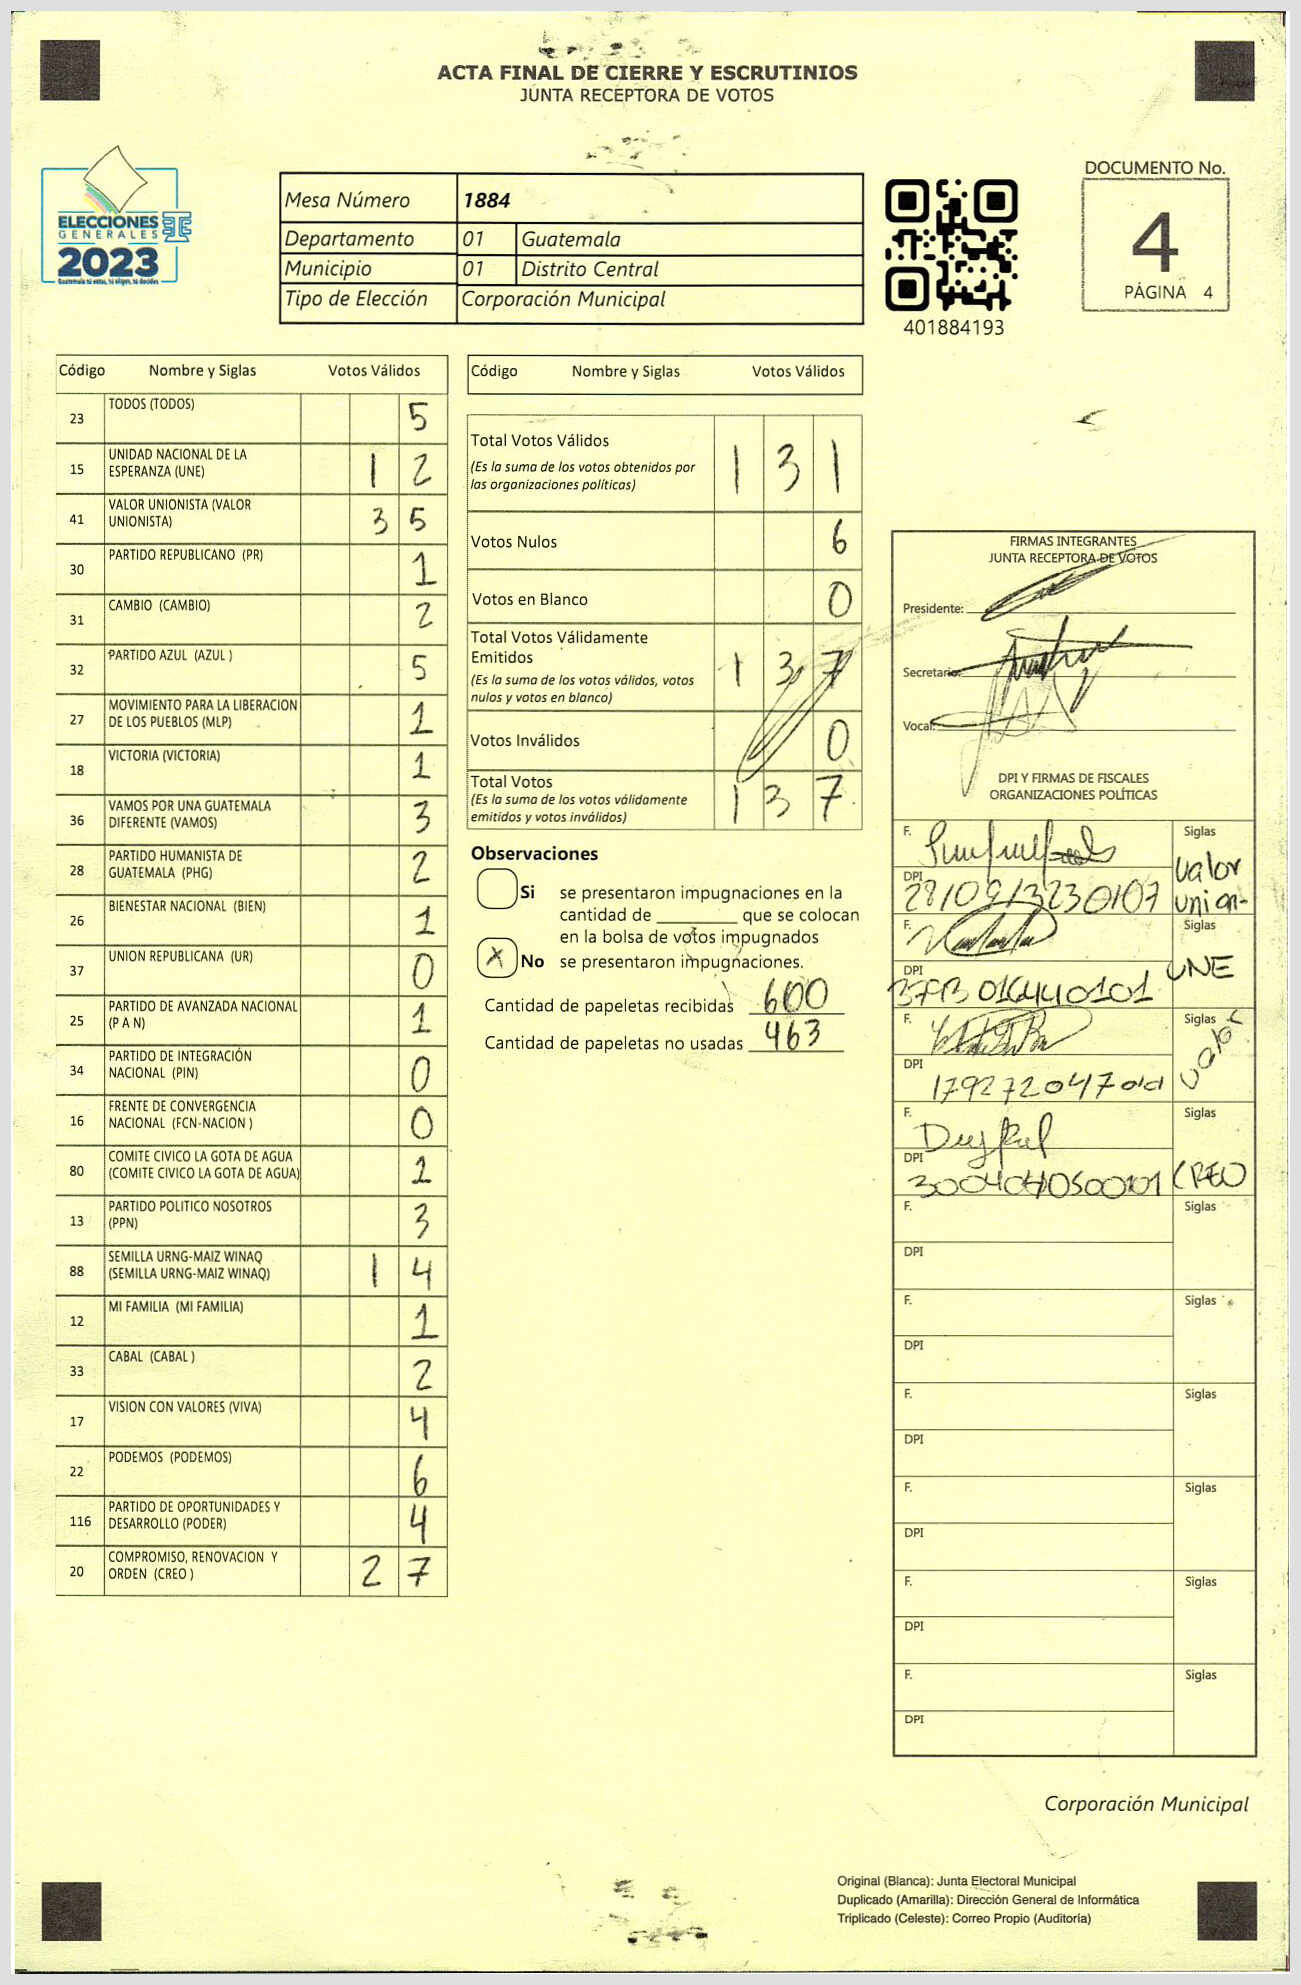 ACTA FINAL DE CIERRE Y ESCRUTINIOS
JUNTA RECEPTORA DE VOTOS
ELECCIONES
GENERALES
2023
Guatemala tú votas, tú eliges, tú decides
Mesa Número 1884
Departamento 01 Guatemala
Municipio 01 Distrito Central
Tipo de Elección Corporación Municipal
401884193
DOCUMENTO No.
4
PÁGINA 4
Código Nombre y Siglas Votos Válidos
23 TODOS (TODOS) 5
15 UNIDAD NACIONAL DE LA
ESPERANZA (UNE) 12
41 VALOR UNIONISTA (VALOR
UNIONISTA) 35
30 PARTIDO REPUBLICANO (PR) 1
31 CAMBIO (CAMBIO) 2
32 PARTIDO AZUL (AZUL ) 5
27 MOVIMIENTO PARA LA LIBERACION
DE LOS PUEBLOS (MLP) 1
18 VICTORIA (VICTORIA) 1
36 VAMOS POR UNA GUATEMALA
DIFERENTE (VAMOS) 3
28 PARTIDO HUMANISTA DE
GUATEMALA (PHG) 2
26 BIENESTAR NACIONAL (BIEN) 1
37 UNION REPUBLICANA (UR) 0
25 PARTIDO DE AVANZADA NACIONAL
(P A N) 1
34 PARTIDO DE INTEGRACIÓN
NACIONAL (PIN) 0
16 FRENTE DE CONVERGENCIA
NACIONAL (FCN-NACION ) 0
80 COMITE CIVICO LA GOTA DE AGUA
(COMITE CIVICO LA GOTA DE AGUA) 1
13 PARTIDO POLITICO NOSOTROS
(PPN) 3
88 SEMILLA URNG-MAIZ WINAQ
(SEMILLA URNG-MAIZ WINAQ) 14
12 MI FAMILIA (MI FAMILIA) 1
33 CABAL (CABAL ) 2
17 VISION CON VALORES (VIVA) 4
22 PODEMOS (PODEMOS) 6
116 PARTIDO DE OPORTUNIDADES Y
DESARROLLO (PODER) 4
20 COMPROMISO, RENOVACION Y
ORDEN (CREO ) 27
Código Nombre y Siglas Votos Válidos
Total Votos Válidos 131
(Es la suma de los votos obtenidos por
las organizaciones políticas)
Votos Nulos 6
Votos en Blanco 0
Total Votos Válidamente
Emitidos 137
(Es la suma de los votos válidos, votos
nulos y votos en blanco)
Votos Inválidos 0
Total Votos 137
(Es la suma de los votos válidamente
emitidos y votos inválidos)
Observaciones
Si se presentaron impugnaciones en la
cantidad de ________ que se colocan
en la bolsa de votos impugnados
X No se presentaron impugnaciones.
Cantidad de papeletas recibidas 600
Cantidad de papeletas no usadas 463
FIRMAS INTEGRANTES
JUNTA RECEPTORA DE VOTOS
Presidente:
Secretario:
Vocal:
DPI Y FIRMAS DE FISCALES
ORGANIZACIONES POLÍTICAS
F. Siglas
valor
union-
DPI
F. Siglas
UNE
DPI
F. Siglas
valor
DPI
F. Siglas
CREO
DPI
F. Siglas
DPI
F. Siglas
DPI
F. Siglas
DPI
F. Siglas
DPI
F. Siglas
DPI
F. Siglas
DPI
Corporación Municipal
Original (Blanca): Junta Electoral Municipal
Duplicado (Amarilla): Dirección General de Informática
Triplicado (Celeste): Correo Propio (Auditoría)